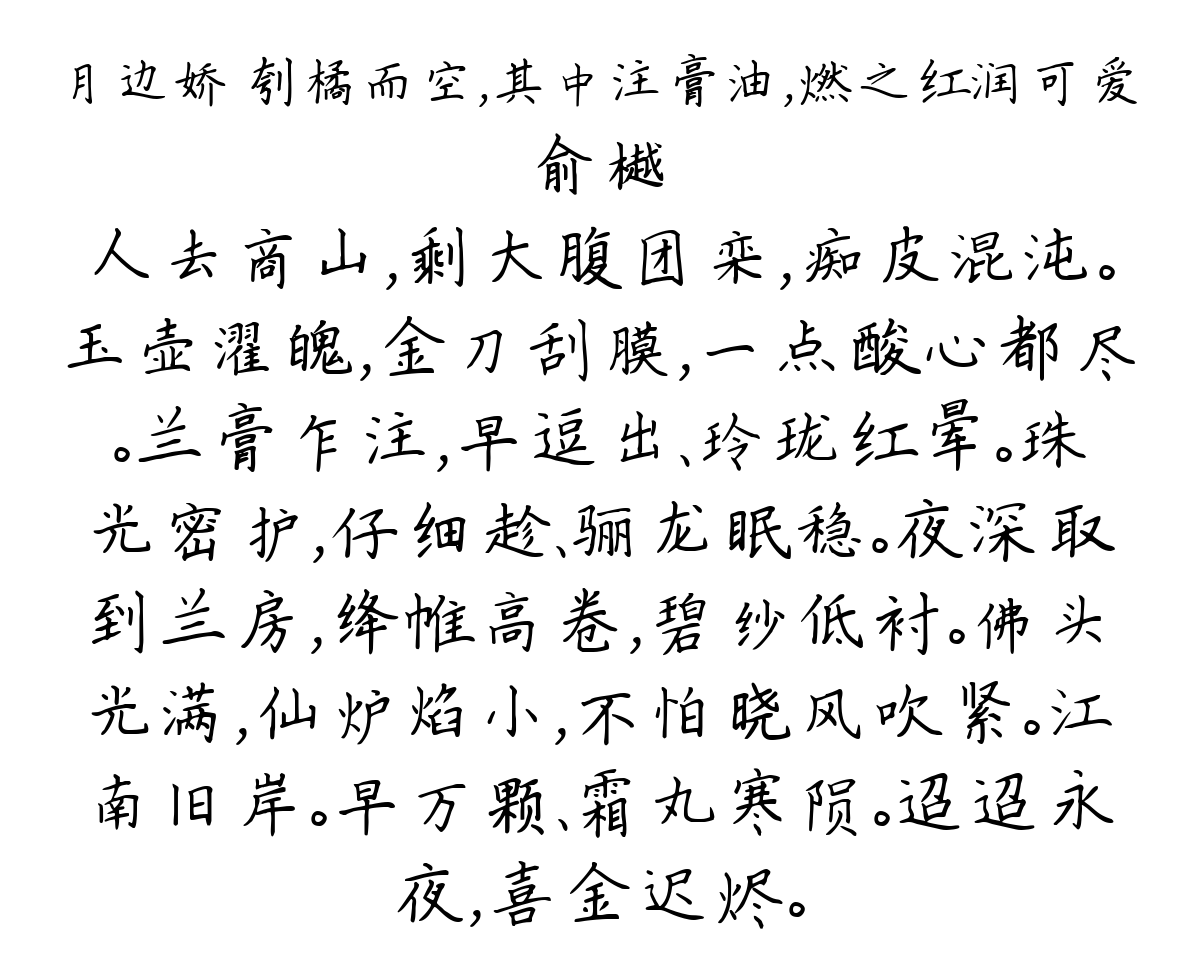 月边娇 刳橘而空,其中注膏油,燃之红润可爱
俞樾
人去商山,剩大腹团栾,痴皮混沌。
玉壶濯魄,金刀刮膜,一点酸心都尽
。兰膏乍注,早逗出、玲珑红晕。珠
光密护,仔细趁、骊龙眠稳。夜深取
到兰房,绛帷高卷,碧纱低衬。佛头
光满,仙炉焰小,不怕晓风吹紧。江
南旧岸。早万颗、霜丸寒陨。迢迢永
夜,喜金迟烬。